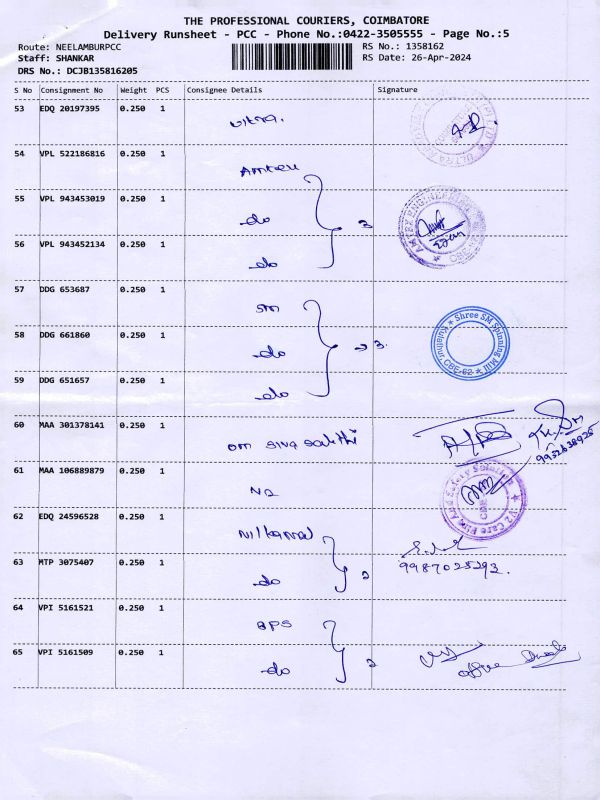 THE PROFESSIONAL COURIERS, COIMBATORE
Delivery Runsheet - PCC - Phone No.:0422-3505555 - Page No.:5
Route: NEELAMBURPCC
RS No.: 1358162
Staff: SHANKAR
RS Date: 26-Apr-2024
DRS No.: DCJB135816205
S No Consignment No Weight PCS Consignee Details Signature
53 EDQ 20197395 0.250 1 ultra.
54 VPL 522186816 0.250 1
55 VPL 943453019 0.250 1 do 3
56 VPL 943452134 0.250 1 do
57 DDG 653687 0.250 1 sm
58 DDG 661860 0.250 1 do 3
Shree SM Spinning Mill
CBE-62
59 DDG 651657 0.250 1 do
60 MAA 301378141 0.250 1 om siva sakthi
9952638925
61 MAA 106889879 0.250 1 V2
V2 Care Fire And Safety Solution
62 EDQ 24596528 0.250 1 Nilkamal
63 MTP 3075407 0.250 1 do 2
9987025293.
64 VPI 5161521 0.250 1 BPS
65 VPI 5161509 0.250 1 do 2